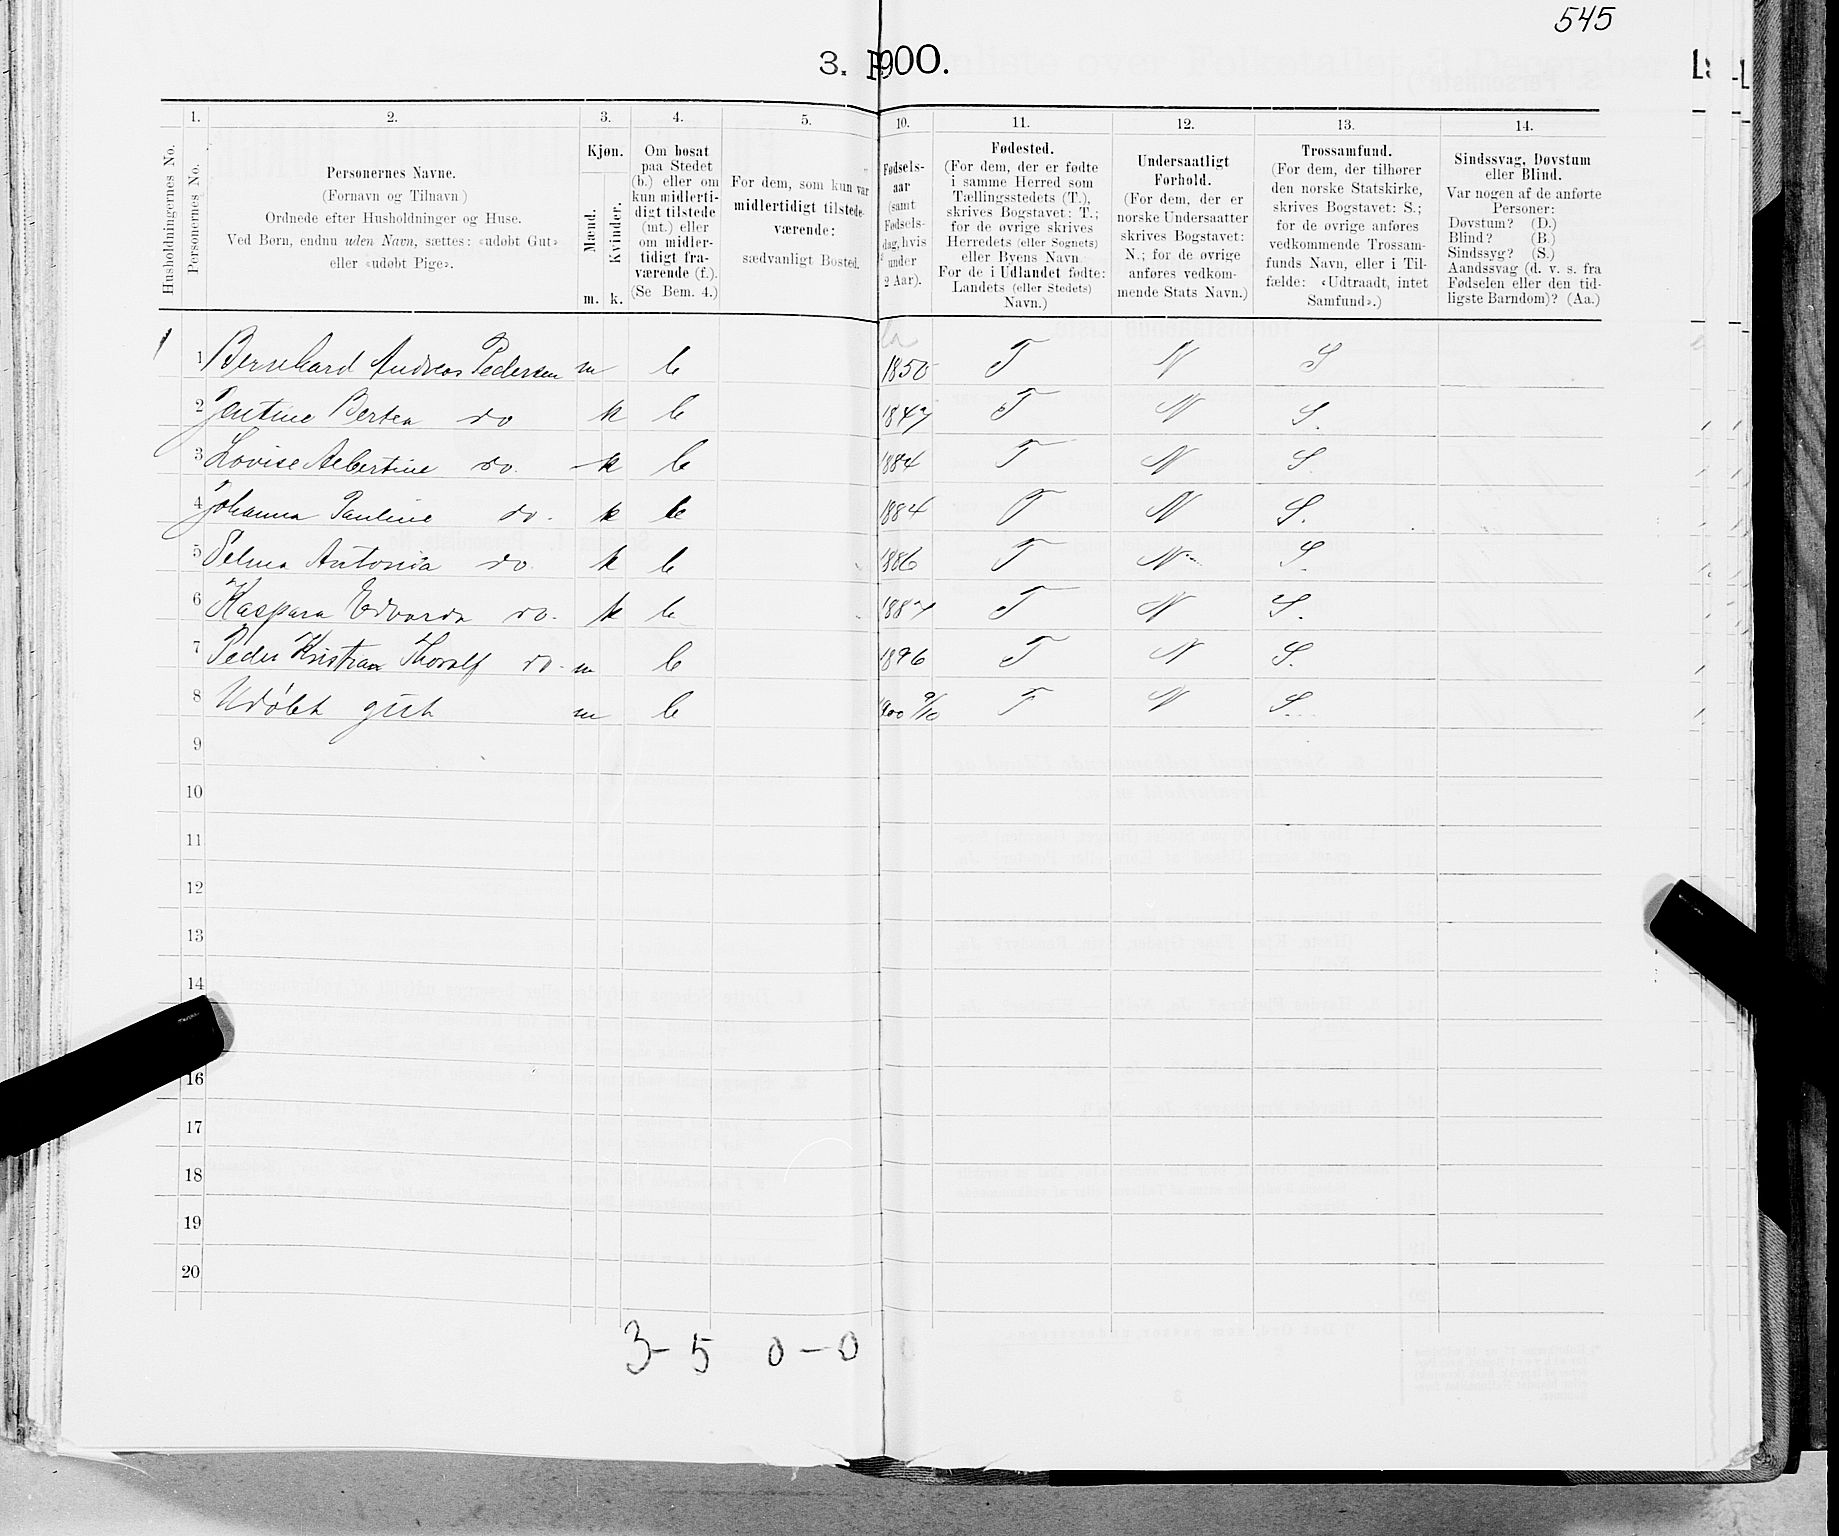 545
3. P900.
1. 2. 3. 4. 5. 10. 11. 12. 13. 14.
Husholdningernes No.
Personernes No.
Personernes Navne.
(Fornavn og Tilnavn)
Ordnede efter Husholdninger og Huse.
Ved Børn, endnu uden Navn, sættes: «udøbt Gut»
eller «udøbt Pige».
Kjøn.
Mænd.
Kvinder.
m. k.
Om bosat
paa Stedet
(b.) eller om
kun midlerti-
digt tilstede
(mt.) eller
om midler-
tidigt fra-
værende (f.).
(Se Bem. 4.)
For dem, som kun var
midlertidigt tilstede-
værende:
sædvanligt Bosted.
Fødsels-
aar
(samt
Fødsels-
dag, hvis
under
2 Aar).
Fødested.
(For dem, der er fødte
i samme Herred som
Tællingsstedets (T.),
skrives Bogstavet: T.;
for de øvrige skrives
Herredets (eller Sognets)
eller Byens Navn.
For de i Udlandet fødte:
Landets (eller Stedets)
Navn.)
Undersaatligt
Forhold.
(For dem, der er
norske Undersaatter
skrives Bogstavet:
N.; for de øvrige
anføres vedkom-
mende Stats Navn.)
Trossamfund.
(For dem, der tilhører
den norske Statskirke,
skrives Bogstavet: S.;
for de øvrige anføres
vedkommende Trossam-
funds Navn, eller i Til-
fælde: «Udtraadt, intet
Samfund».)
Sindssvag, Døvstum
eller Blind.
Var nogen af de anførte
Personer:
Døvstum? (D.)
Blind? (B.)
Sindssyg? (S.)
Aandssvag (d. v. s. fra
Fødselen eller den tid-
ligste Barndom)? (Aa.)
1 1 Bernhard Andreas Pedersen m b 1850 T N S
2 Jentine Berten do k b 1847 T N S.
3 Lovise Albertine do. k b 1884 T N S.
4 Johanna Pauline do. k b 1884 T N S.
5 Selma Antonia do. k b 1886 T N S.
6 Kaspara Edvarda do. k b 1887 T N S.
7 Peder Kristian Thoralf do. m b 1896 T N S.
8 Udøbt gut m b 1900 9/10 T N S.
9
10
11
12
13
14
16
17
18
19
20
3-5 0-0